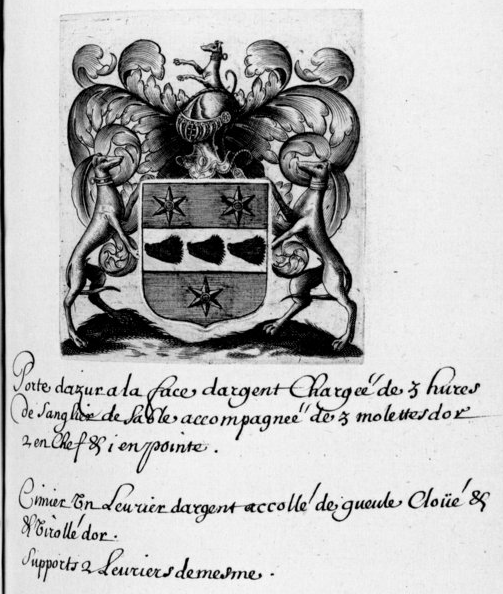 Porte dazur a la face dargent Chargeé de 3 hures
de Sanglier de Sable accompagneé de 3 molettes dor
2 en Chef & 1 en pointe.
Cimier Un Leurier dargent accollé de gueule Cloüé &
& Virollé dor.
Supports 2 Leuriers de mesme.